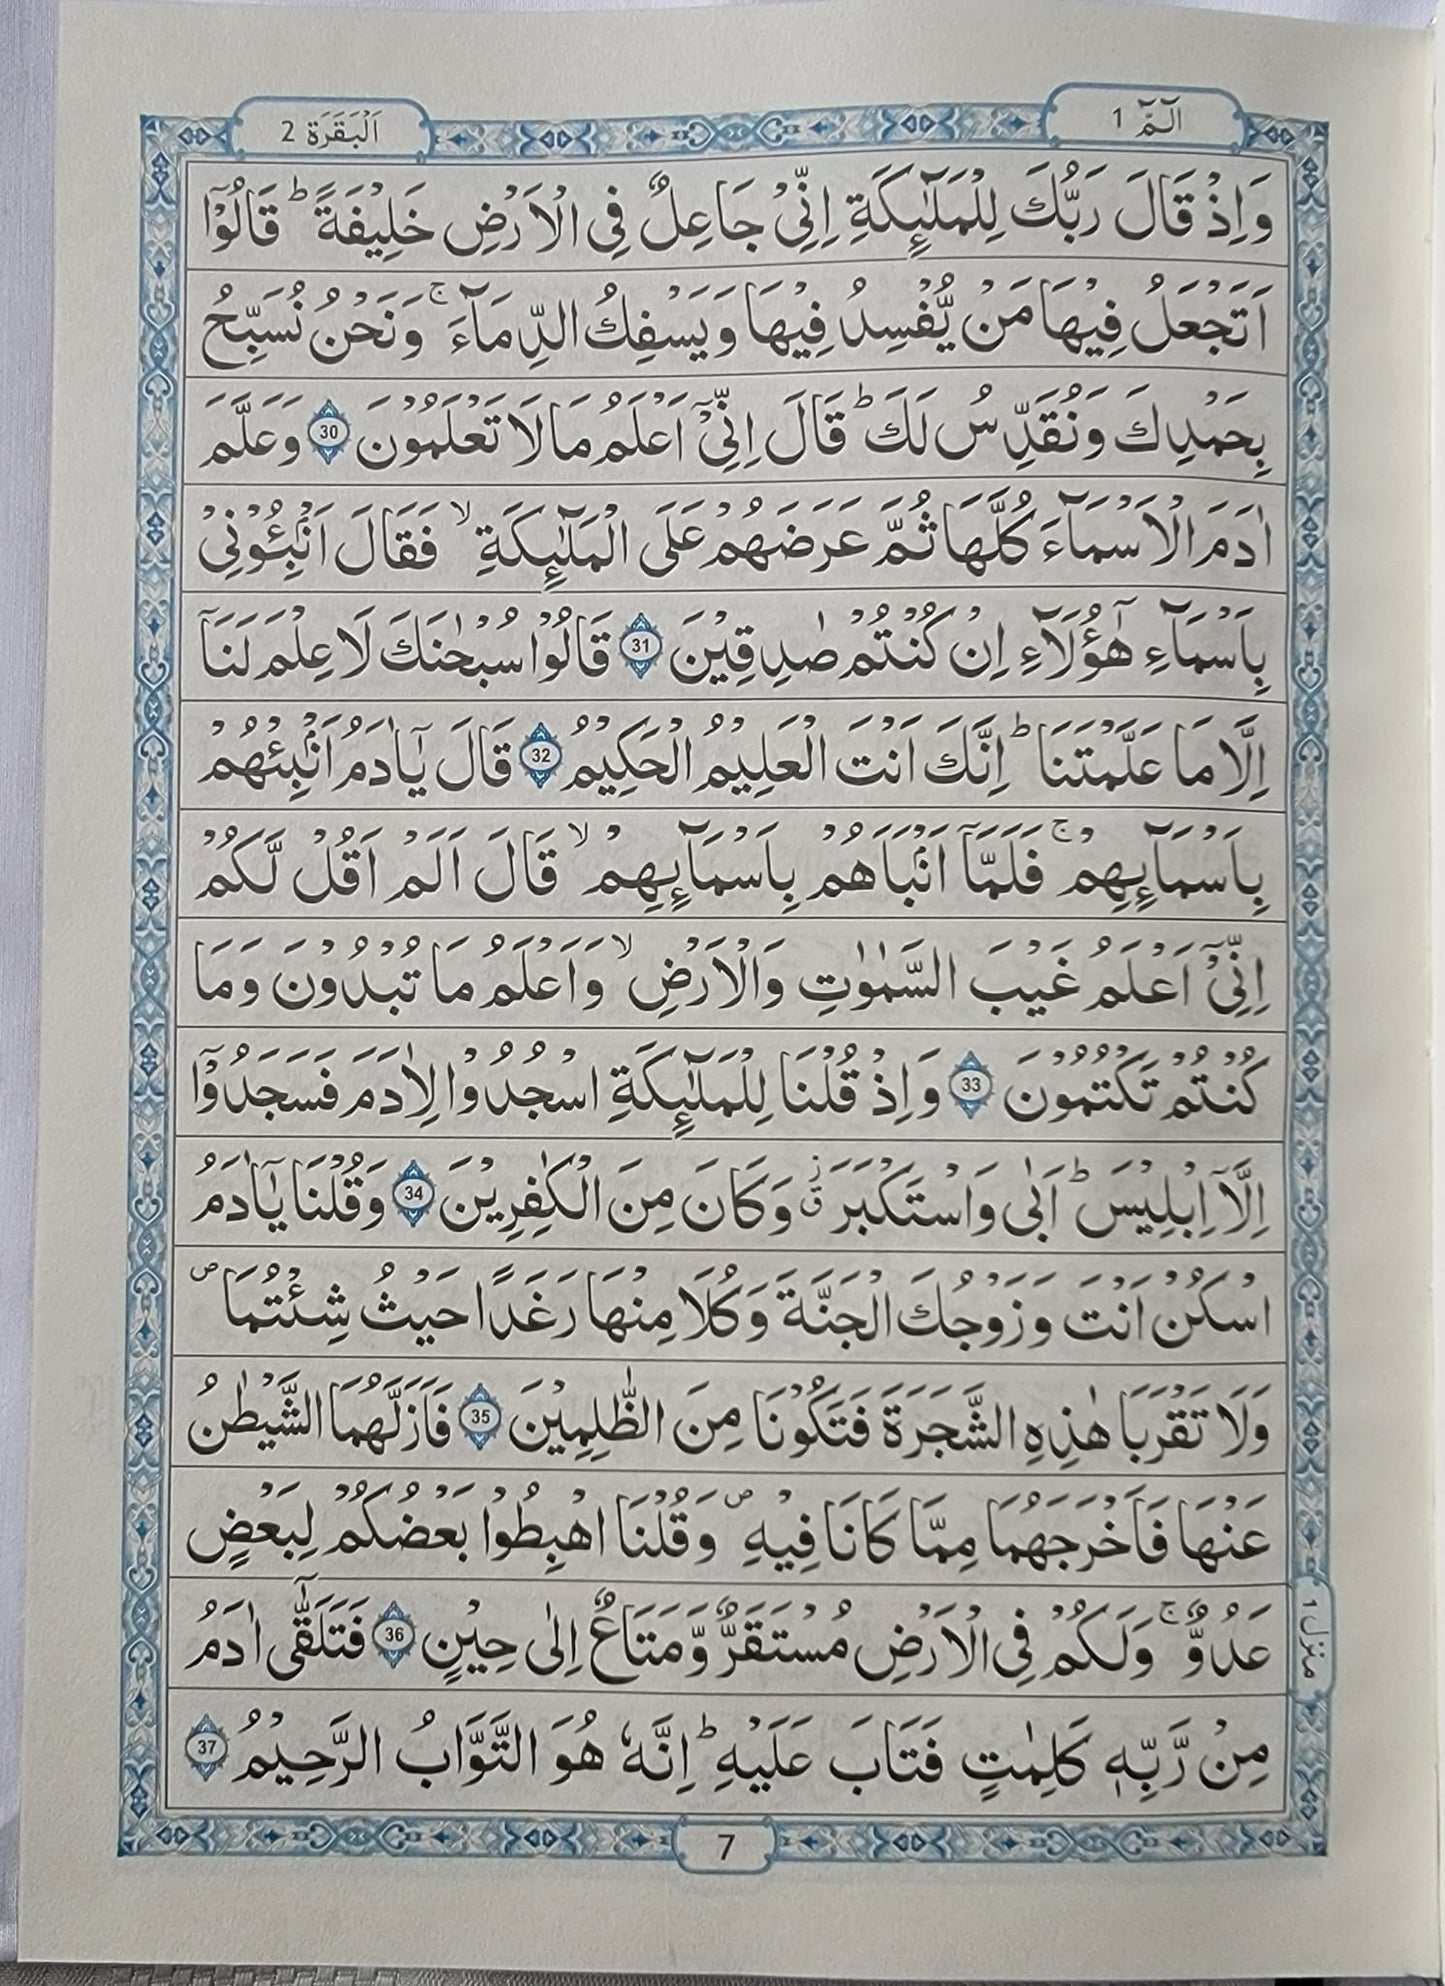 الٓمّٓ 1
اَلْبَقَرَة 2
وَاِذْ قَالَ رَبُّكَ لِلْمَلٰٓئِكَةِ اِنِّیْ جَاعِلٌ فِی الْاَرْضِ خَلِیْفَةً ؕ قَالُوْۤا
اَتَجْعَلُ فِیْهَا مَنْ یُّفْسِدُ فِیْهَا وَیَسْفِكُ الدِّمَآءَ ۚ وَنَحْنُ نُسَبِّحُ
بِحَمْدِكَ وَنُقَدِّسُ لَكَ ؕ قَالَ اِنِّیْۤ اَعْلَمُ مَا لَا تَعْلَمُوْنَ 30 وَعَلَّمَ
اٰدَمَ الْاَسْمَآءَ كُلَّهَا ثُمَّ عَرَضَهُمْ عَلَی الْمَلٰٓئِكَةِ ۙ فَقَالَ اَنْۢبِـُٔوْنِیْ
بِاَسْمَآءِ هٰۤؤُلَآءِ اِنْ كُنْتُمْ صٰدِقِیْنَ 31 قَالُوْا سُبْحٰنَكَ لَا عِلْمَ لَنَاۤ
اِلَّا مَا عَلَّمْتَنَا ؕ اِنَّكَ اَنْتَ الْعَلِیْمُ الْحَكِیْمُ 32 قَالَ یٰۤاٰدَمُ اَنْۢبِئْهُمْ
بِاَسْمَآىِٕهِمْ ۚ فَلَمَّاۤ اَنْۢبَاَهُمْ بِاَسْمَآىِٕهِمْ ۙ قَالَ اَلَمْ اَقُلْ لَّكُمْ
اِنِّیْۤ اَعْلَمُ غَیْبَ السَّمٰوٰتِ وَالْاَرْضِ ۙ وَاَعْلَمُ مَا تُبْدُوْنَ وَمَا
كُنْتُمْ تَكْتُمُوْنَ 33 وَاِذْ قُلْنَا لِلْمَلٰٓئِكَةِ اسْجُدُوْا لِاٰدَمَ فَسَجَدُوْۤا
اِلَّاۤ اِبْلِیْسَ ؕ اَبٰی وَاسْتَكْبَرَ ۗ٘ وَكَانَ مِنَ الْكٰفِرِیْنَ 34 وَقُلْنَا یٰۤاٰدَمُ
اسْكُنْ اَنْتَ وَزَوْجُكَ الْجَنَّةَ وَكُلَا مِنْهَا رَغَدًا حَیْثُ شِئْتُمَا ۪
وَلَا تَقْرَبَا هٰذِهِ الشَّجَرَةَ فَتَكُوْنَا مِنَ الظّٰلِمِیْنَ 35 فَاَزَلَّهُمَا الشَّیْطٰنُ
عَنْهَا فَاَخْرَجَهُمَا مِمَّا كَانَا فِیْهِ ۪ وَقُلْنَا اهْبِطُوْا بَعْضُكُمْ لِبَعْضٍ
عَدُوٌّ ۚ وَلَكُمْ فِی الْاَرْضِ مُسْتَقَرٌّ وَّمَتَاعٌ اِلٰی حِیْنٍ 36 فَتَلَقّٰۤی اٰدَمُ
مِنْ رَّبِّهٖ كَلِمٰتٍ فَتَابَ عَلَیْهِ ؕ اِنَّهٗ هُوَ التَّوَّابُ الرَّحِیْمُ 37
منزل 1
7